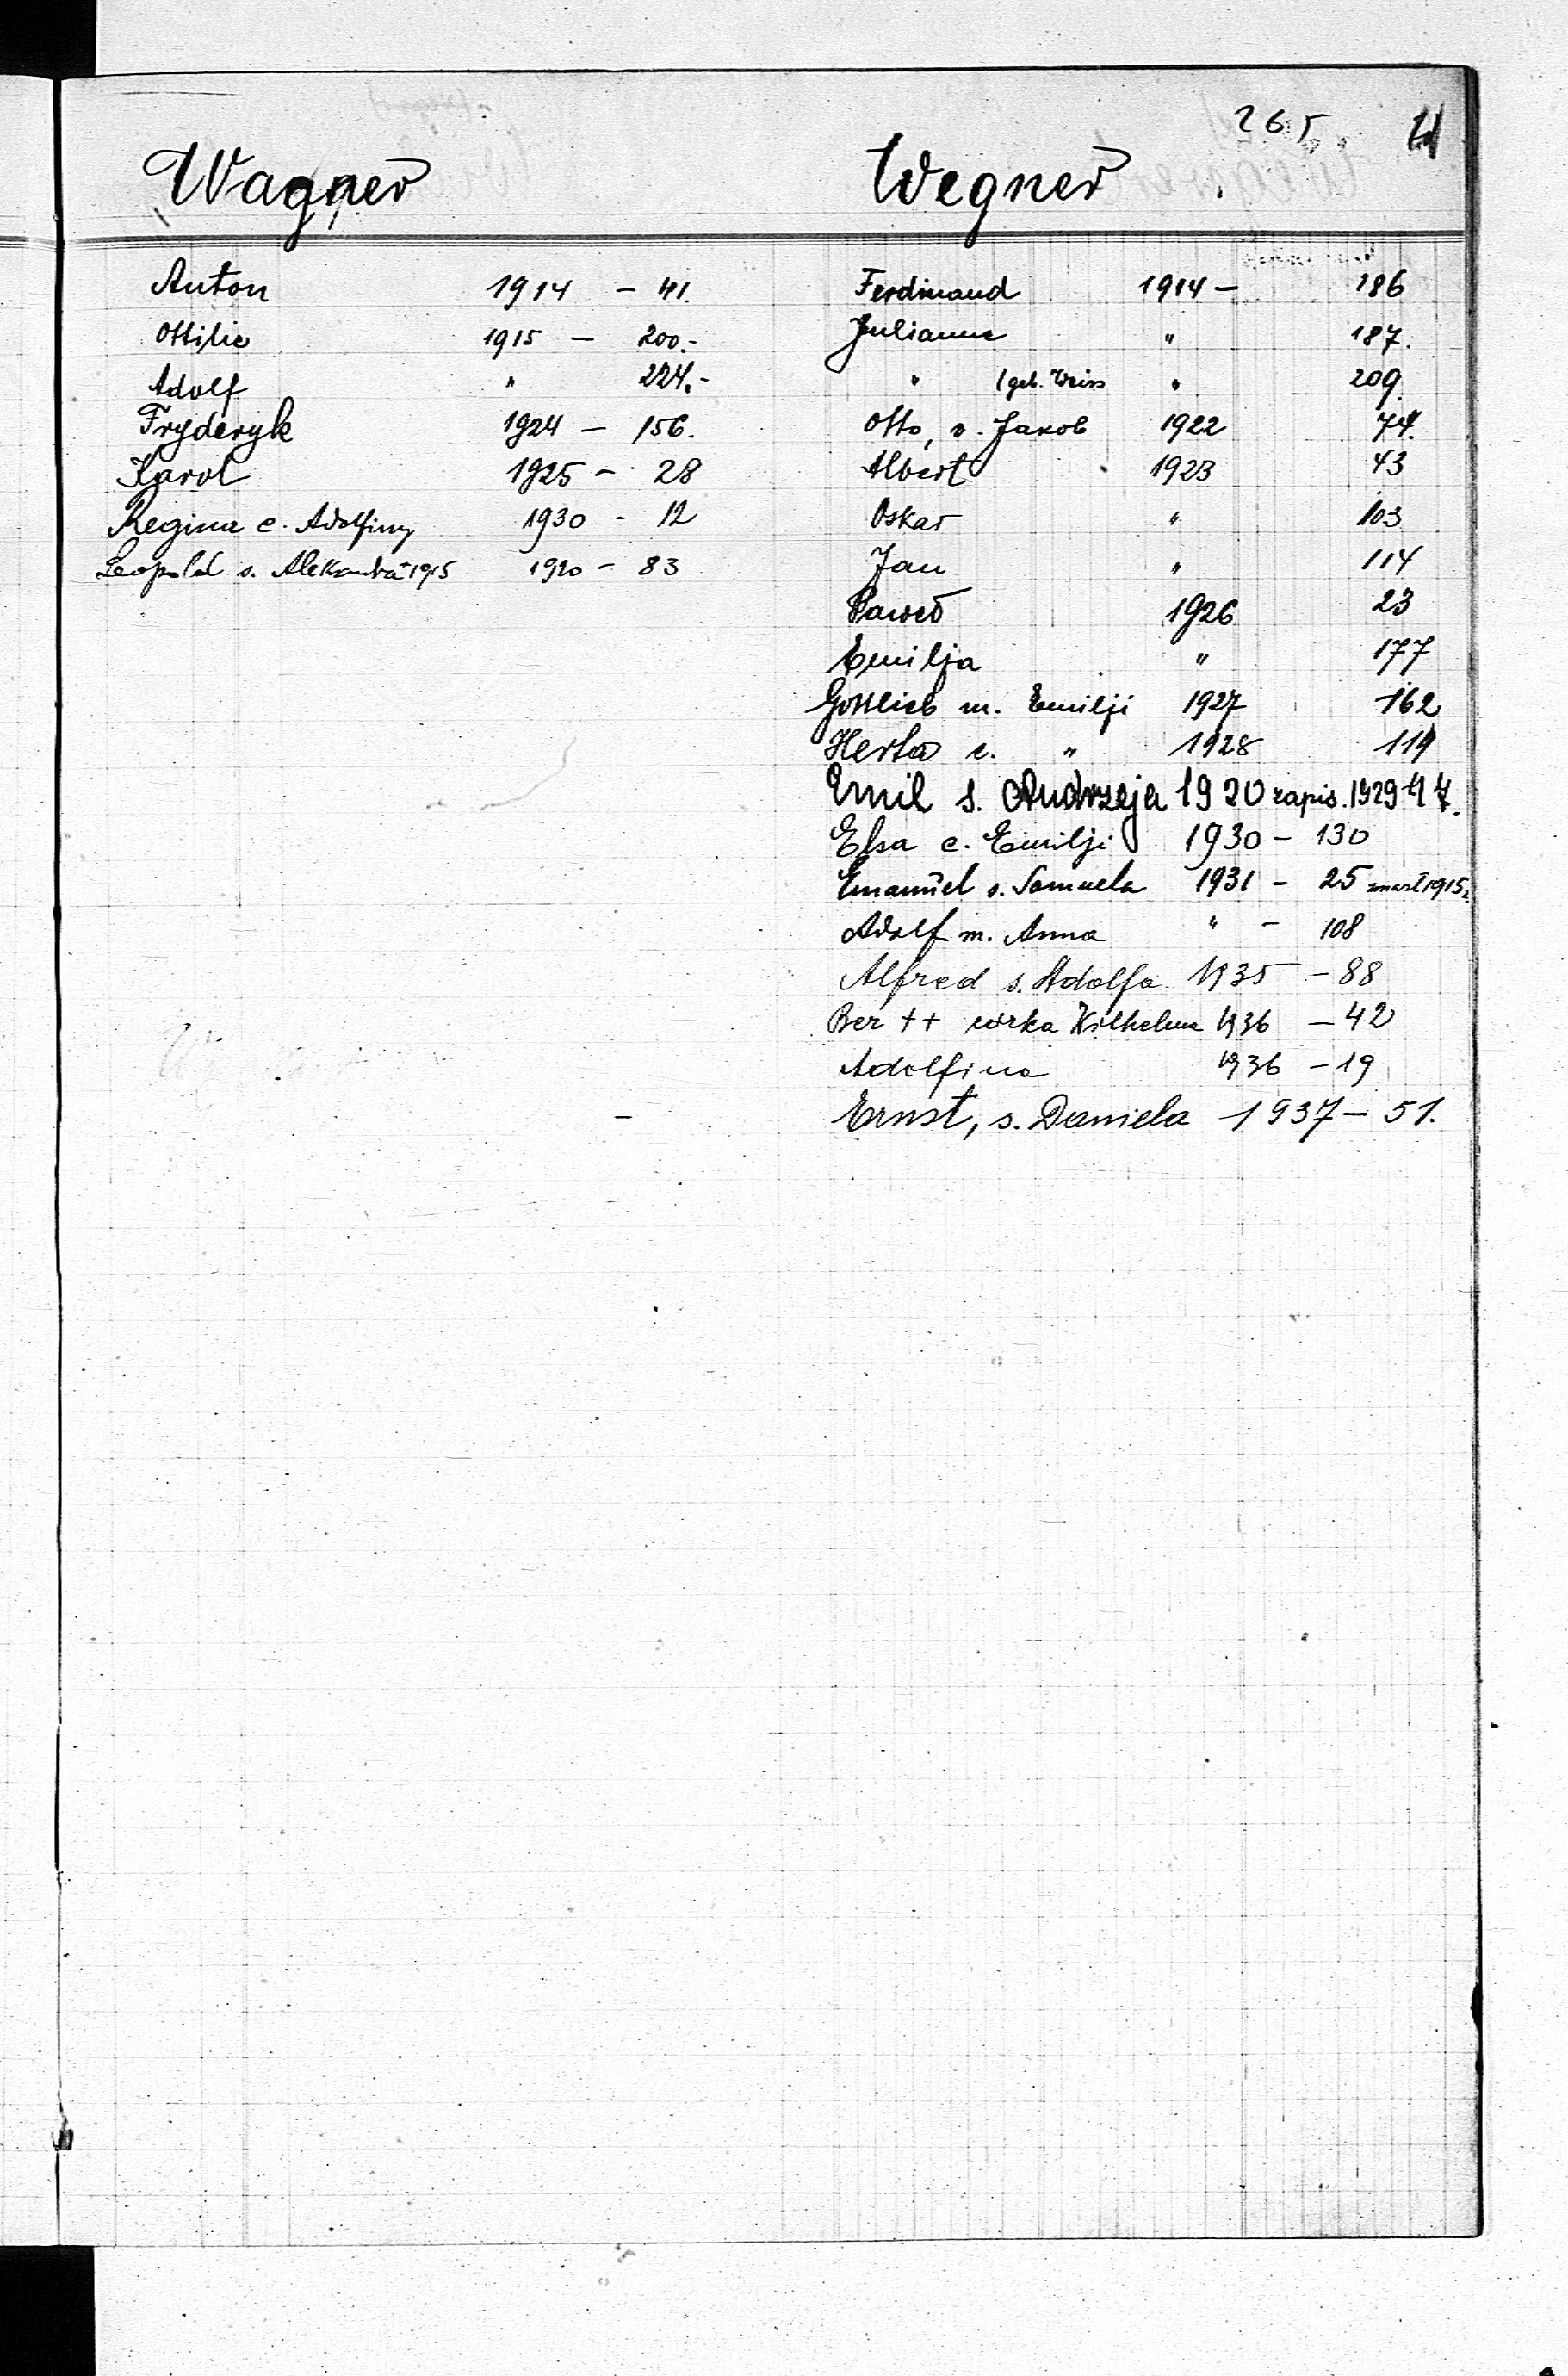 265. 4
Wagner
Anton 1914 - 41.
Ottilie 1915 - 200.-
Adolf " 224.-
Fryderyk 1924 - 156.
Karol 1925 - 28
Regina c. Adolfiny 1930 - 12
Leopold s. Aleksandra 1915 1920 - 83
Wegner
Ferdinand 1914 - 186
Julianne " 187.
" (geb. Weiss " 209
Otto, v. Jakob 1922 74.
Albert 1923 43
Oskar " 103
Jan " 114
Paweł 1926 23
Emilja " 177
Gottlieb m. Emilji 1927 162
Herta c. " 1928 119
Emil s. Andrzeja 1920 zapis. 1929 47.
Elsa c. Emilji 1930 - 130
Emanuel s. Samuela 1931 - 25 zmarł 1915 r.
Adolf m. Anna " - 108
Alfred s. Adolfa 1935 - 88
Ber ++ córka Wilhelma 1936 - 42
Adolfina 1936 - 19
Ernst, s. Daniela 1937 - 51.